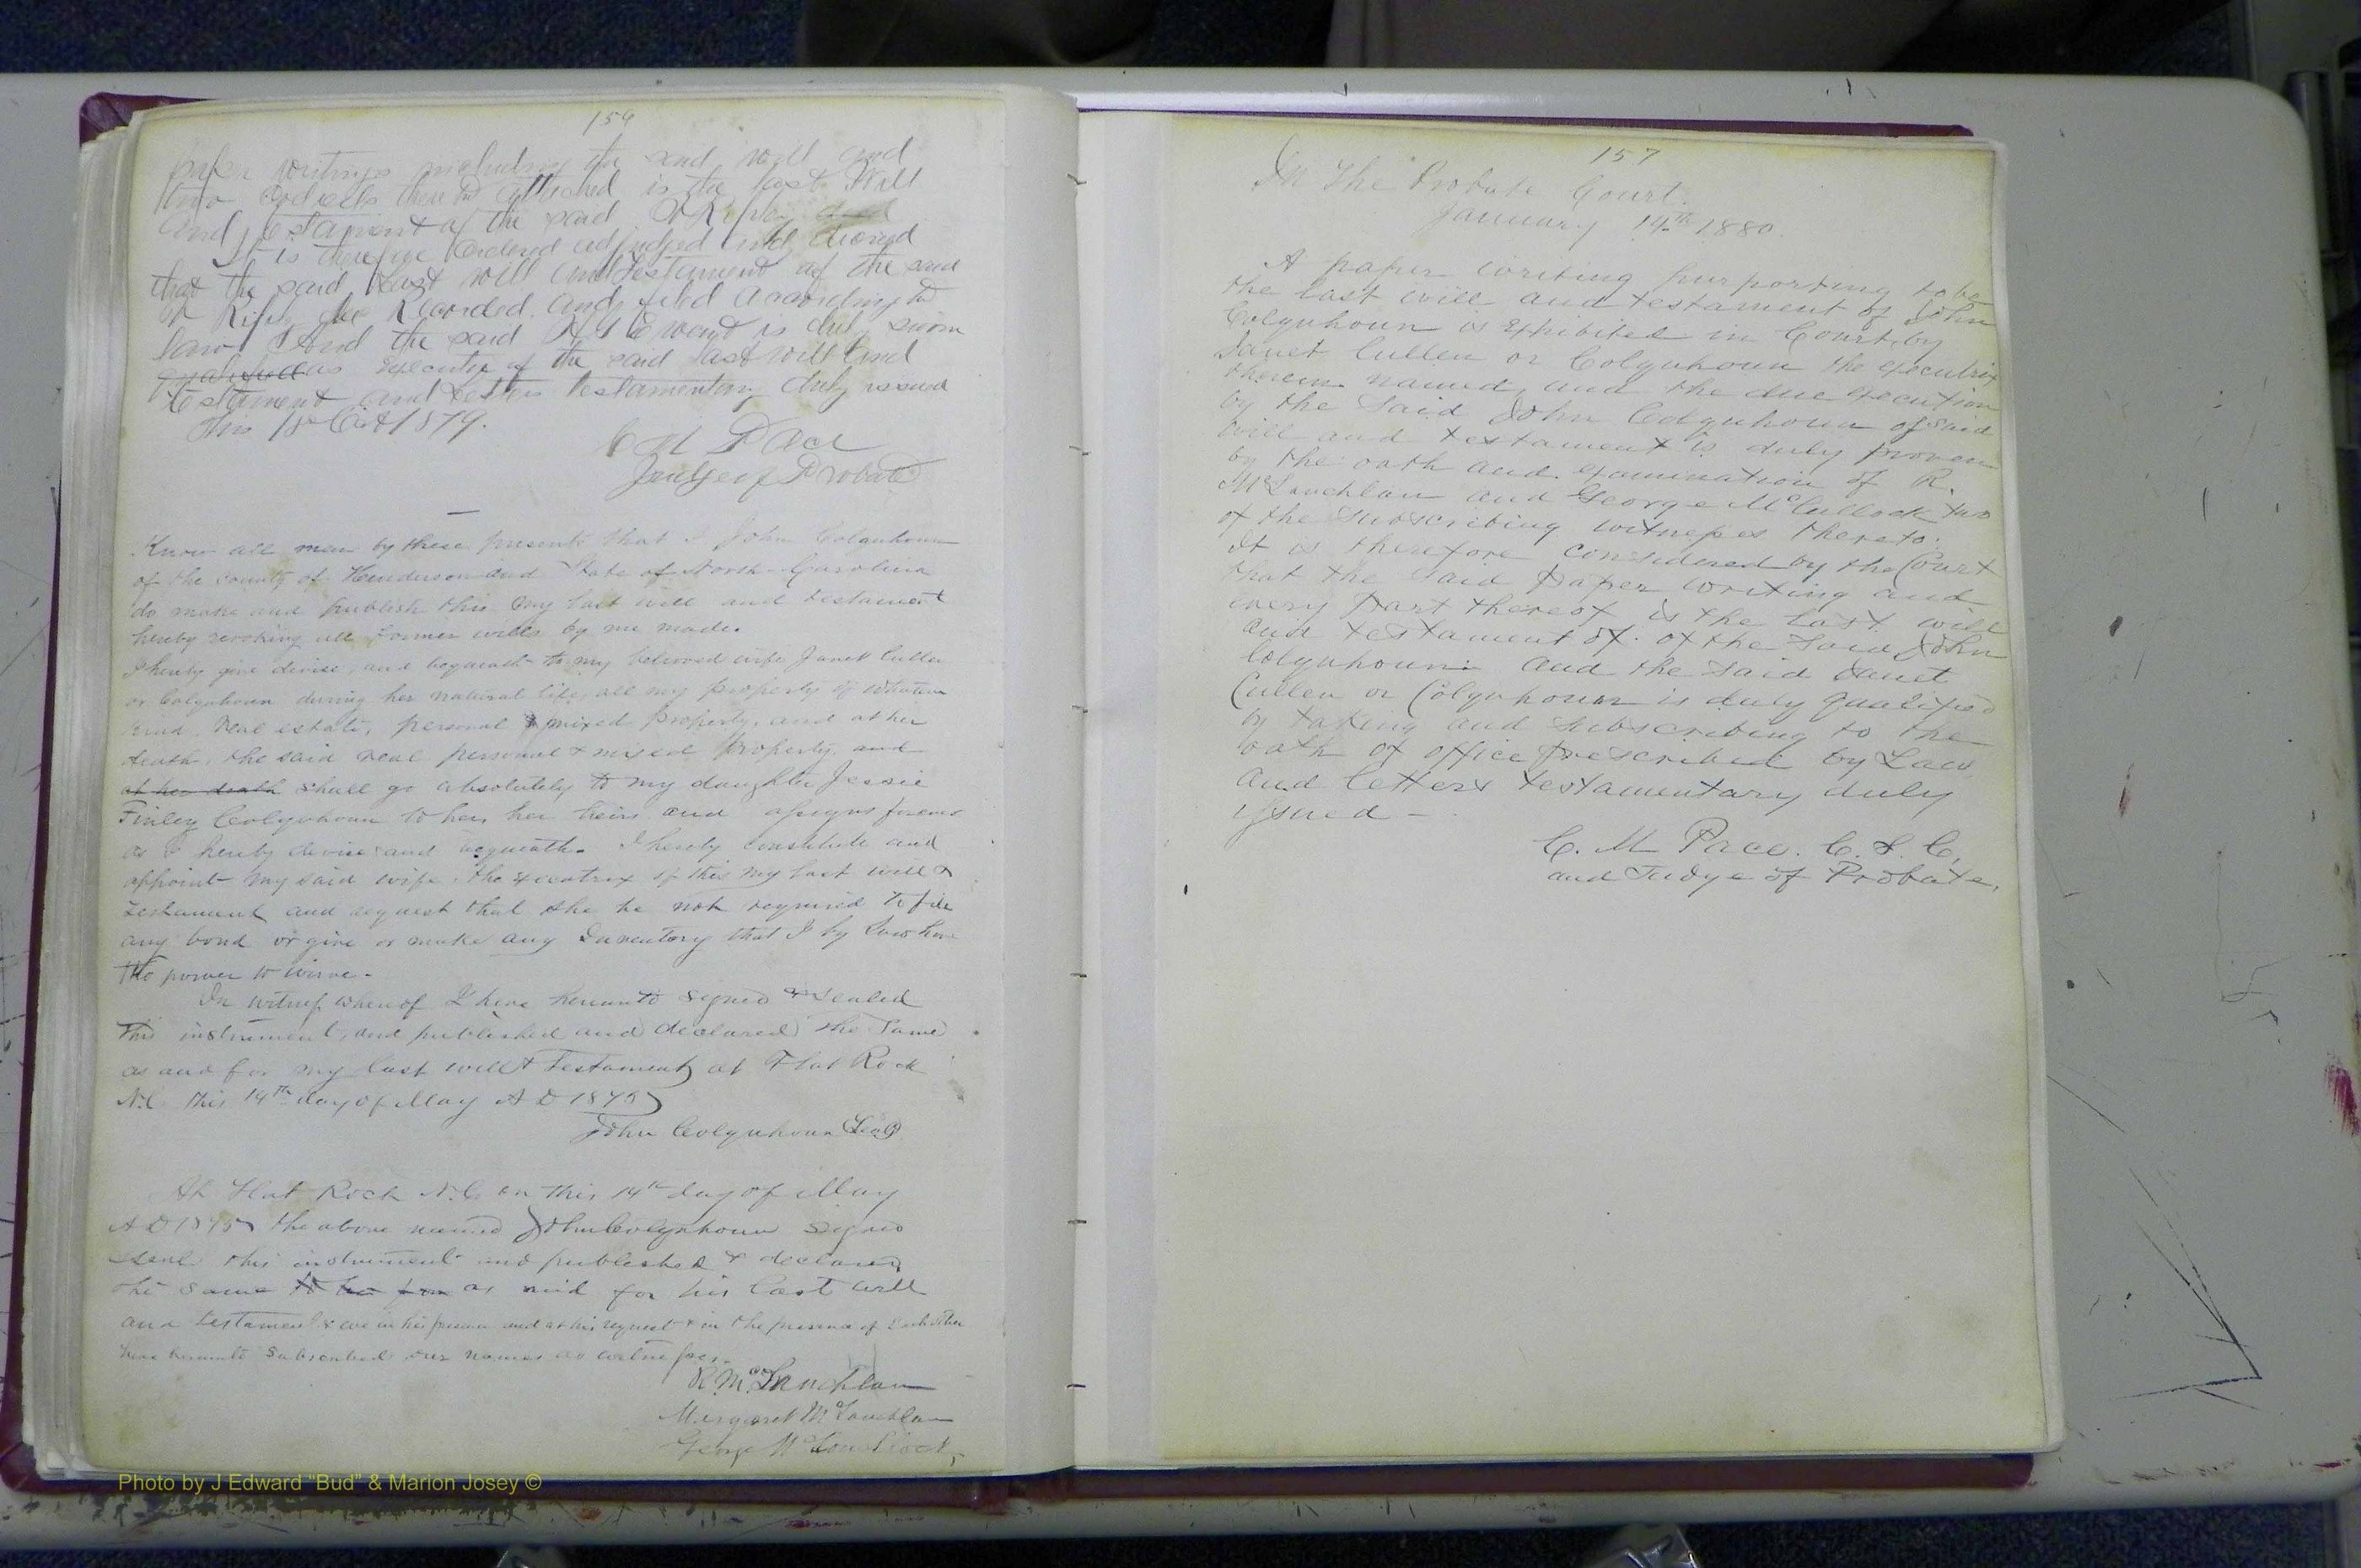 159
paper writings including the said will and
two Codicils thereto attached is the last Will
and Testament of the said
It is therefore Ordered adjudged and decreed
that the said Last will and Testament of the said
be Recorded and filed according to
Law And the said is duly sworn
qualified as Executor of the said Last will and
testament and Letters Testamentary duly issued
This 18 Oct 1879.
C M Pace
Judge of Probate
Know all men by these presents that I John Colquhoun
of the county of Henderson and State of North Carolina
do make and publish this my last will and testament
hereby revoking all former wills by me made.
I hereby give devise, and bequeath to my beloved wife Janet Cullen
or Colquhoun during her natural life, all my property of whatever
kind, real estate, personal & mixed property, and at her
death, the said real personal & mixed property, and
at her death shall go absolutely to my daughter Jessie
Finley Colquhoun to her, her heirs and assigns forever
as I hereby devise and bequeath. I hereby constitute and
appoint my said wife the executrix of this my last will &
testament and request that she be not required to file
any bond or give or make any Inventory that I by Law have
the power to waive.
In witness whereof I have hereunto signed & sealed
this instrument, and published and declared the same
as and for my last will & Testament at Flat Rock
N.C. this 14th day of May A D 1875
John Colquhoun Seal
At Flat Rock N.C. on this 14th day of May
A D 1875 the above named John Colquhoun signed
seal this instrument and published & declared
the same as and for his last will
and testament & we in his presence and at his request & in the presence of each other
have hereunto subscribed our names as witnesses.
R. McLauchlan
Margaret McLauchlan
George
157
In The Probate Court.
January 14th 1880.
A paper writing purporting to be
the last will and testament of John
Colquhoun is exhibited in Court by
Janet Cullen or Colquhoun the executrix
therein named, and the due execution
by the said John Colquhoun of said
will and testament is duly proven
by the oath and examination of R.
McLauchlan and George McCullock two
of the subscribing witnesses thereto.
It is therefore considered by the Court
that the said paper writing and
every part thereof is the last will
and testament of. of the said John
Colquhoun: and the said Janet
Cullen or Colquhoun is duly qualified
by taking and subscribing to the
oath of office prescribed by Law
and letters testamentary duly
issued -
C. M Pace. C. S. C,
and Judge of Probate,
Photo by J Edward "Bud" & Marion Josey ©